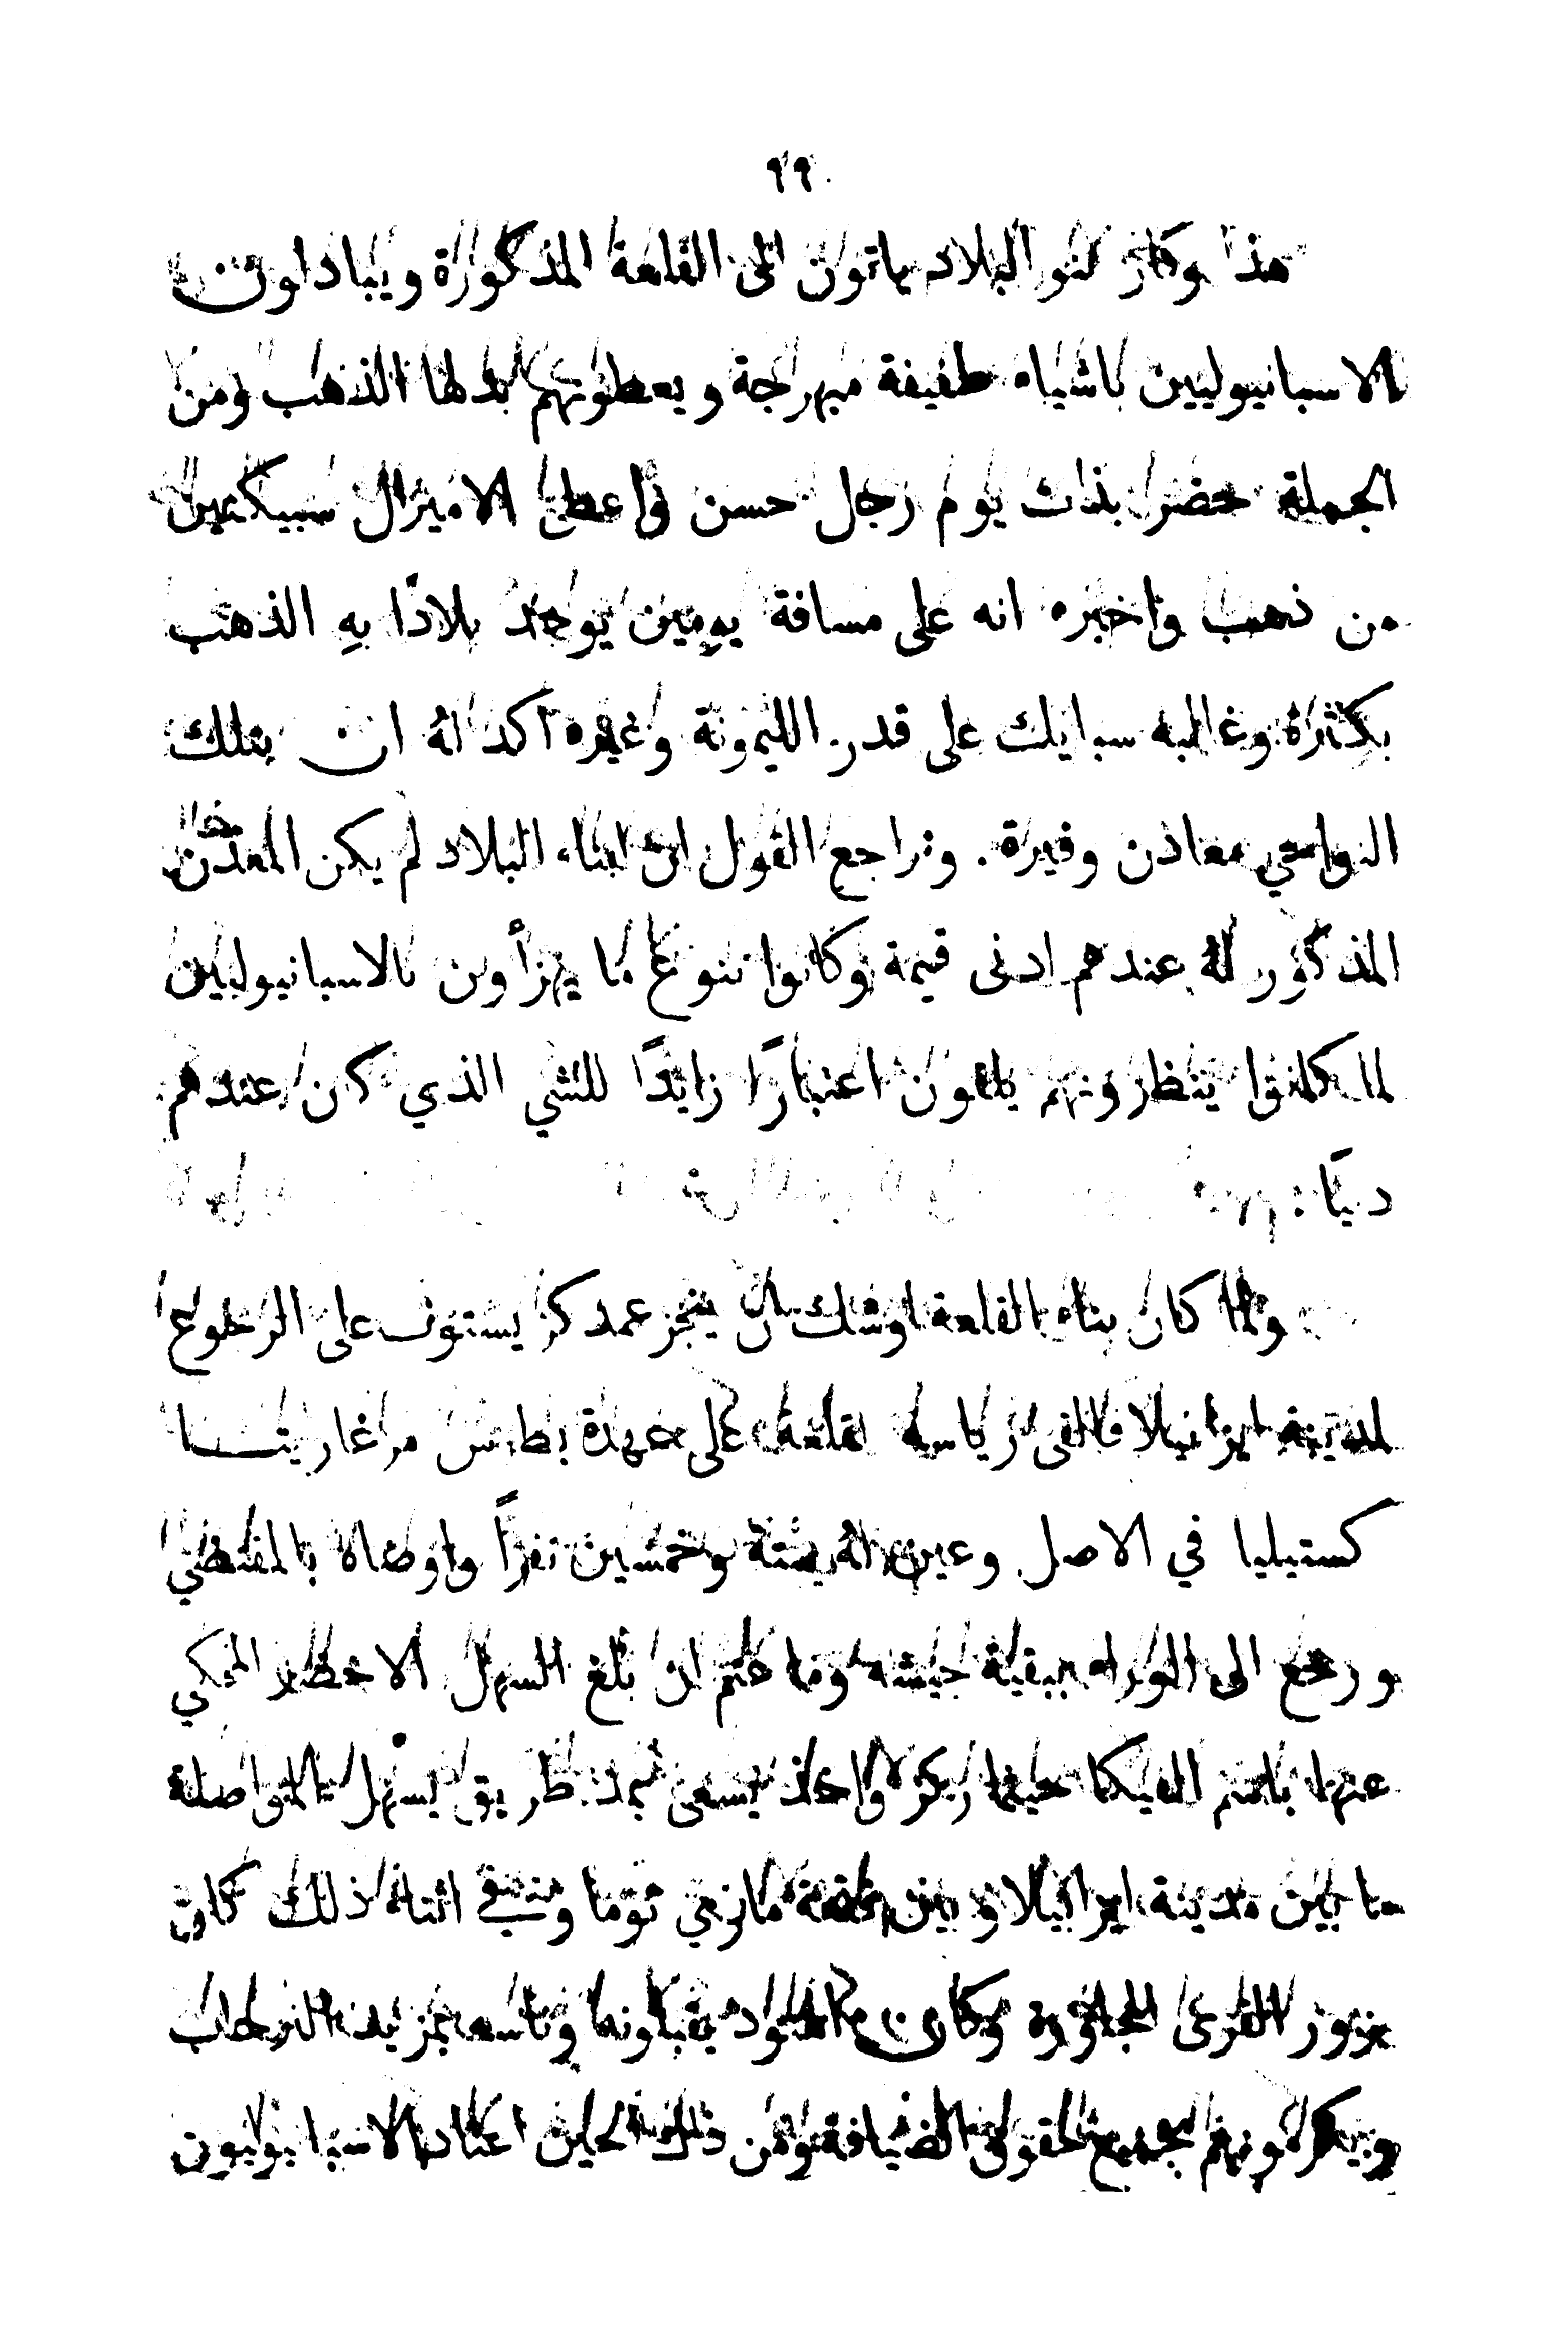 ٩٩
هذا وكان سكنو البلاد ياتون الى القلعة المذكورة ويبادلون
الاسبانيوليين باشياء طفيفة مبهرجة ويعطونهم بدلها الذهب ومن
الجملة حضر بذات يوم رجل حسن واعطى الاميرال سبيكتين
من ذهب واخبره انه على مسافة يومين يوجد بلادًا بهِ الذهب
بكثرة وغالبه سبايك على قدر الليمونة وغيره اكد لهُ ان بتلك
النواحي معادن وفيرة. ونراجع القول ان ابناء البلاد لم يكن المعدن
المذكور لهُ عندهم ادنى قيمة وكانوا بنوع ما يهزأون بالاسبانيوليين
لما كانوا ينظرونهم يلقون اعتبارًا زايدًا للشي الذي كان عندهم
دنيًا
ولما كان بناء القلعة اوشك ان ينجز عمد كريستوف على الرجوع
لمدينة ايزابيلا فالقى رياسة القلعة على عهدة بطرس مرغاريتـا
كستيليا في الاصل وعين لهُ ستة وخمسين نفرًا واوصاه بالمقتضي
ورجع الى الوراء ببقية جيشه وما عتم ان بلغ السهل الاخضر المحكي
عنها باسم الفيكا واخذ يسعى بمد طريق يسهل المواصلة
ما بين مدينة ايزابيلا وبين قلعة ماري توما وفي اثناء ذلك كان
يزور القرى المجاورة وكان يقبلونه وناسه بمزيد الترحاب
ويكرمونهم بجميع حقوق الضيافة ومن ذلك الحين اعتاد الاسبانيوليون